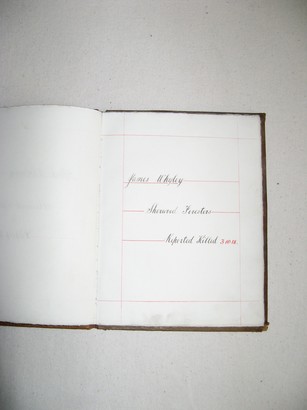 James Whyley
Sherwood Foresters
Reported Killed